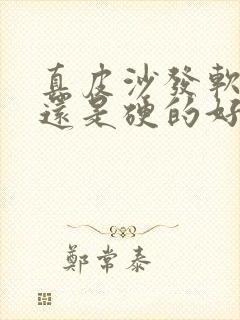 真皮沙發軟
還是硬的好
鄭常泰